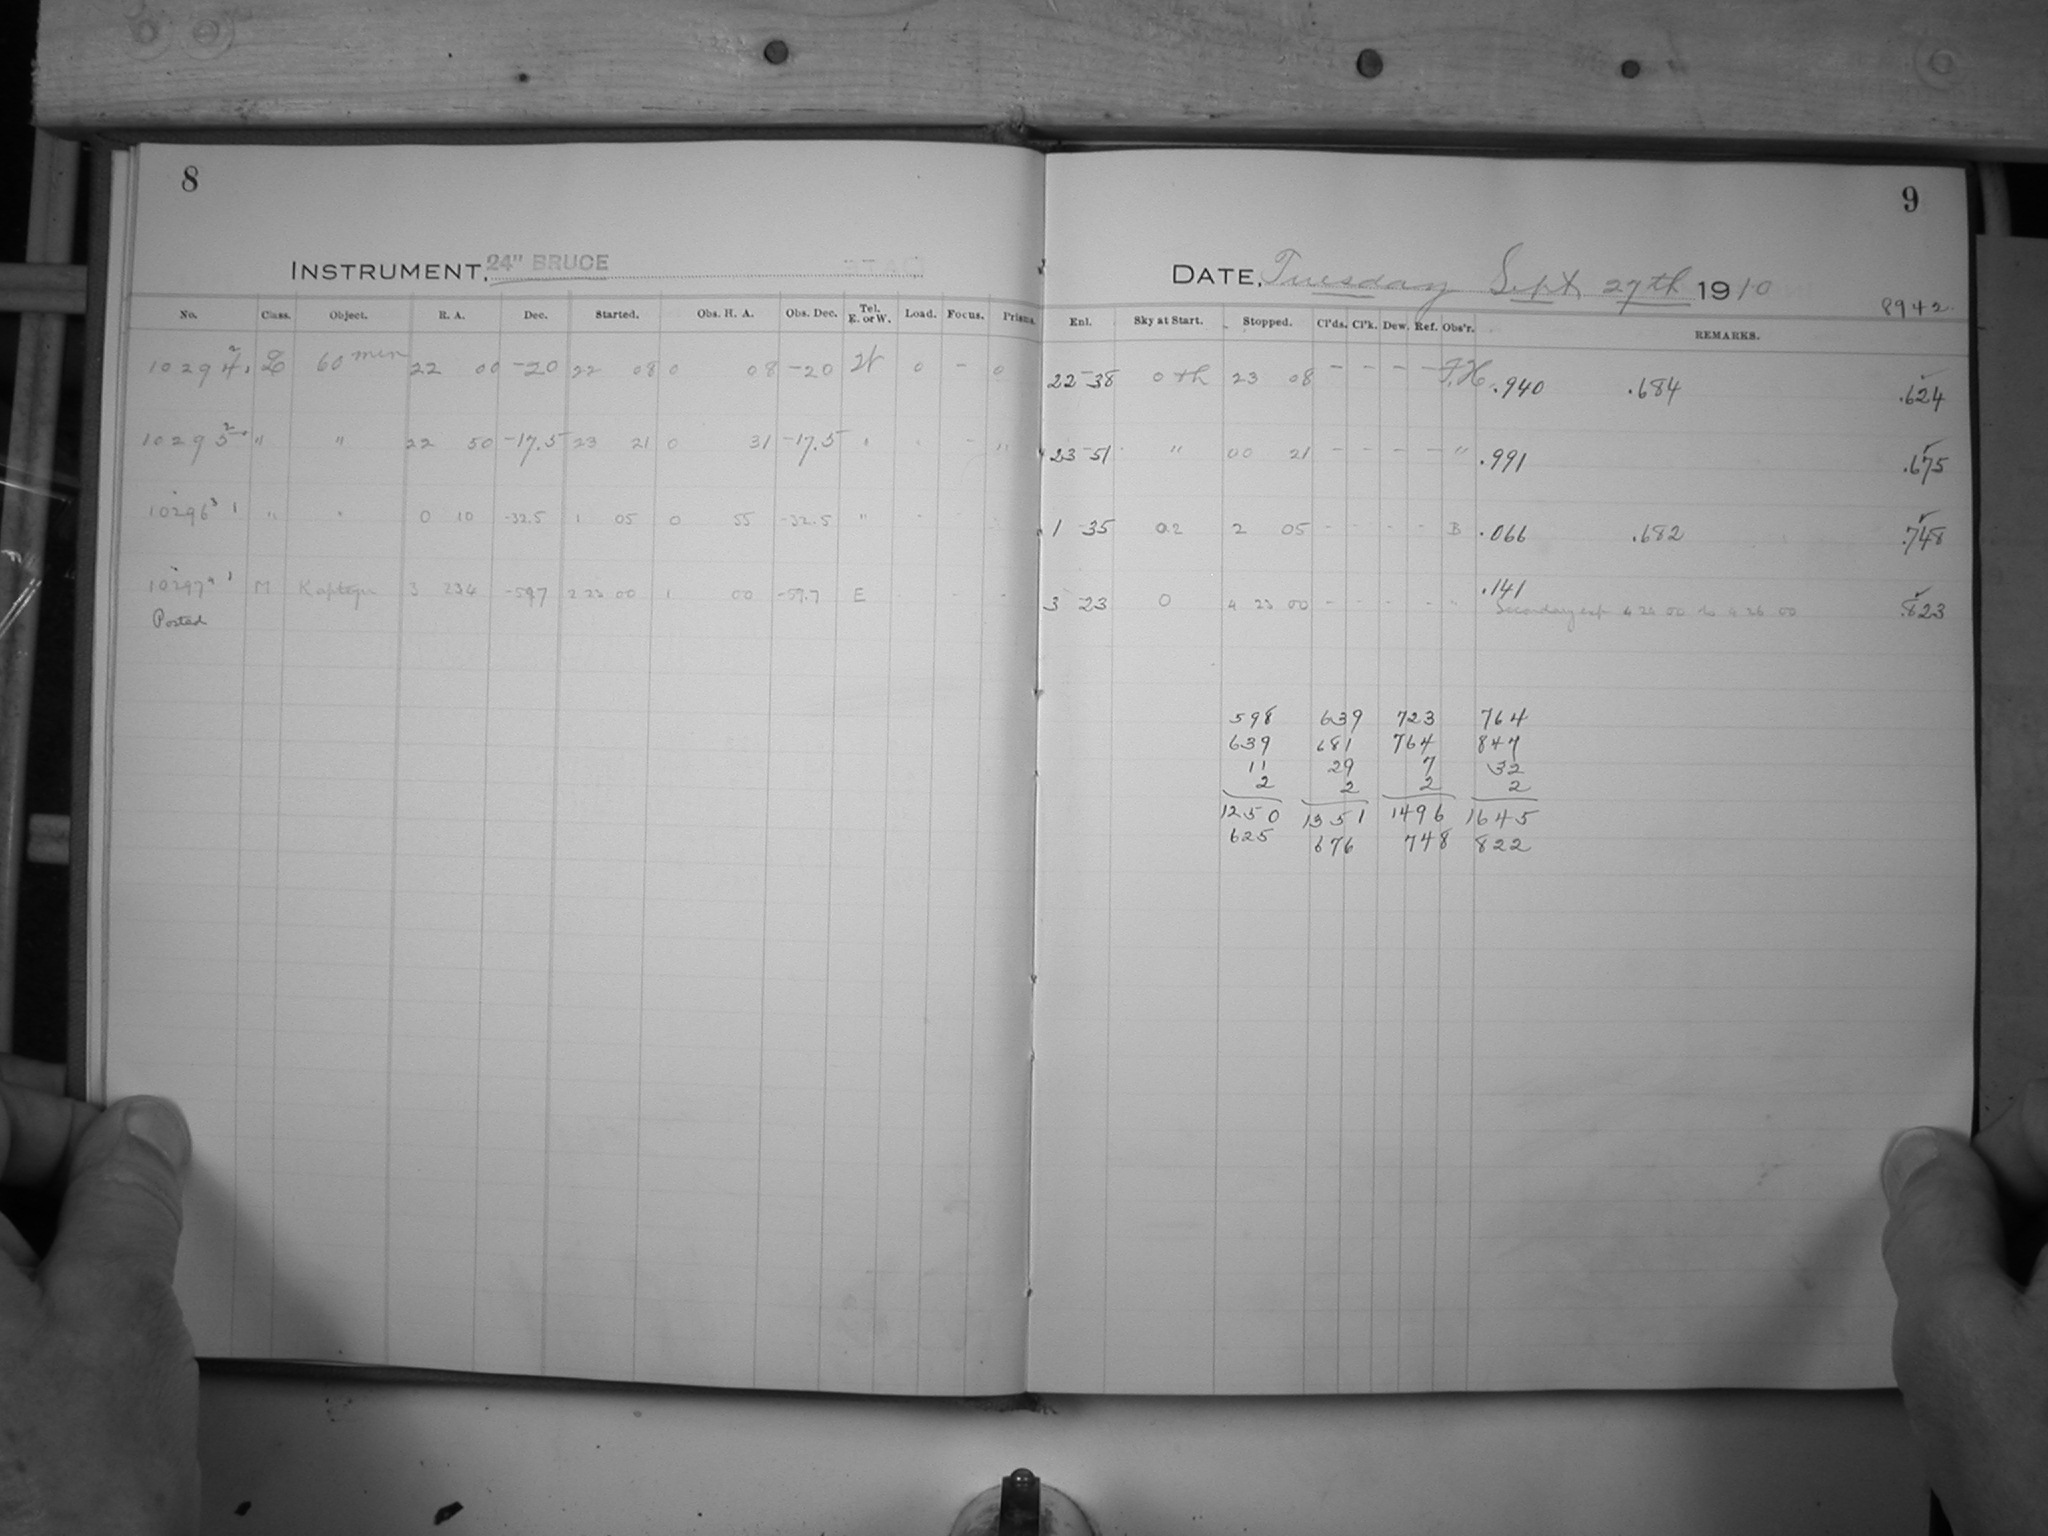 8
INSTRUMENT, 24" BRUCE
No. Class. Object. R. A. Dec. Started. Obs. H. A. Obs. Dec. Tel. E. or W. Load. Focus. Prisms.
10294 2 L 60 min 22 00 -20 22 08 0 08 -20 W 0 - 0
10295 2 " " 22 50 -17.5 23 21 0 31 -17.5 " " - "
10296 3 1 " " 0 10 -32.5 1 05 0 55 -32.5 " - -
10297 4 1 M Kapteyn 3 234 -59.7 2 23 00 1 00 -59.7 E - -
Posted
9
DATE, Tuesday Sept 27th 1910
8942
Enl. Sky at Start. Stopped. Cl'ds. Cl'k. Dew. Ref. Obs'r. REMARKS.
22-38 0 th 23 08 - - - - F.H. .940 .684 .624
23-51 " 00 21 - - - - " .991 .675
1 35 02 2 05 - - - - B .066 .682 .748
.141
3 23 0 4 23 00 - - - - - Secondary exp 4 25 00 to 4 26 00 .823
598 639 723 764
639 681 764 847
11 29 7 32
2 2 2 2
1250 1351 1496 1645
625 676 748 822